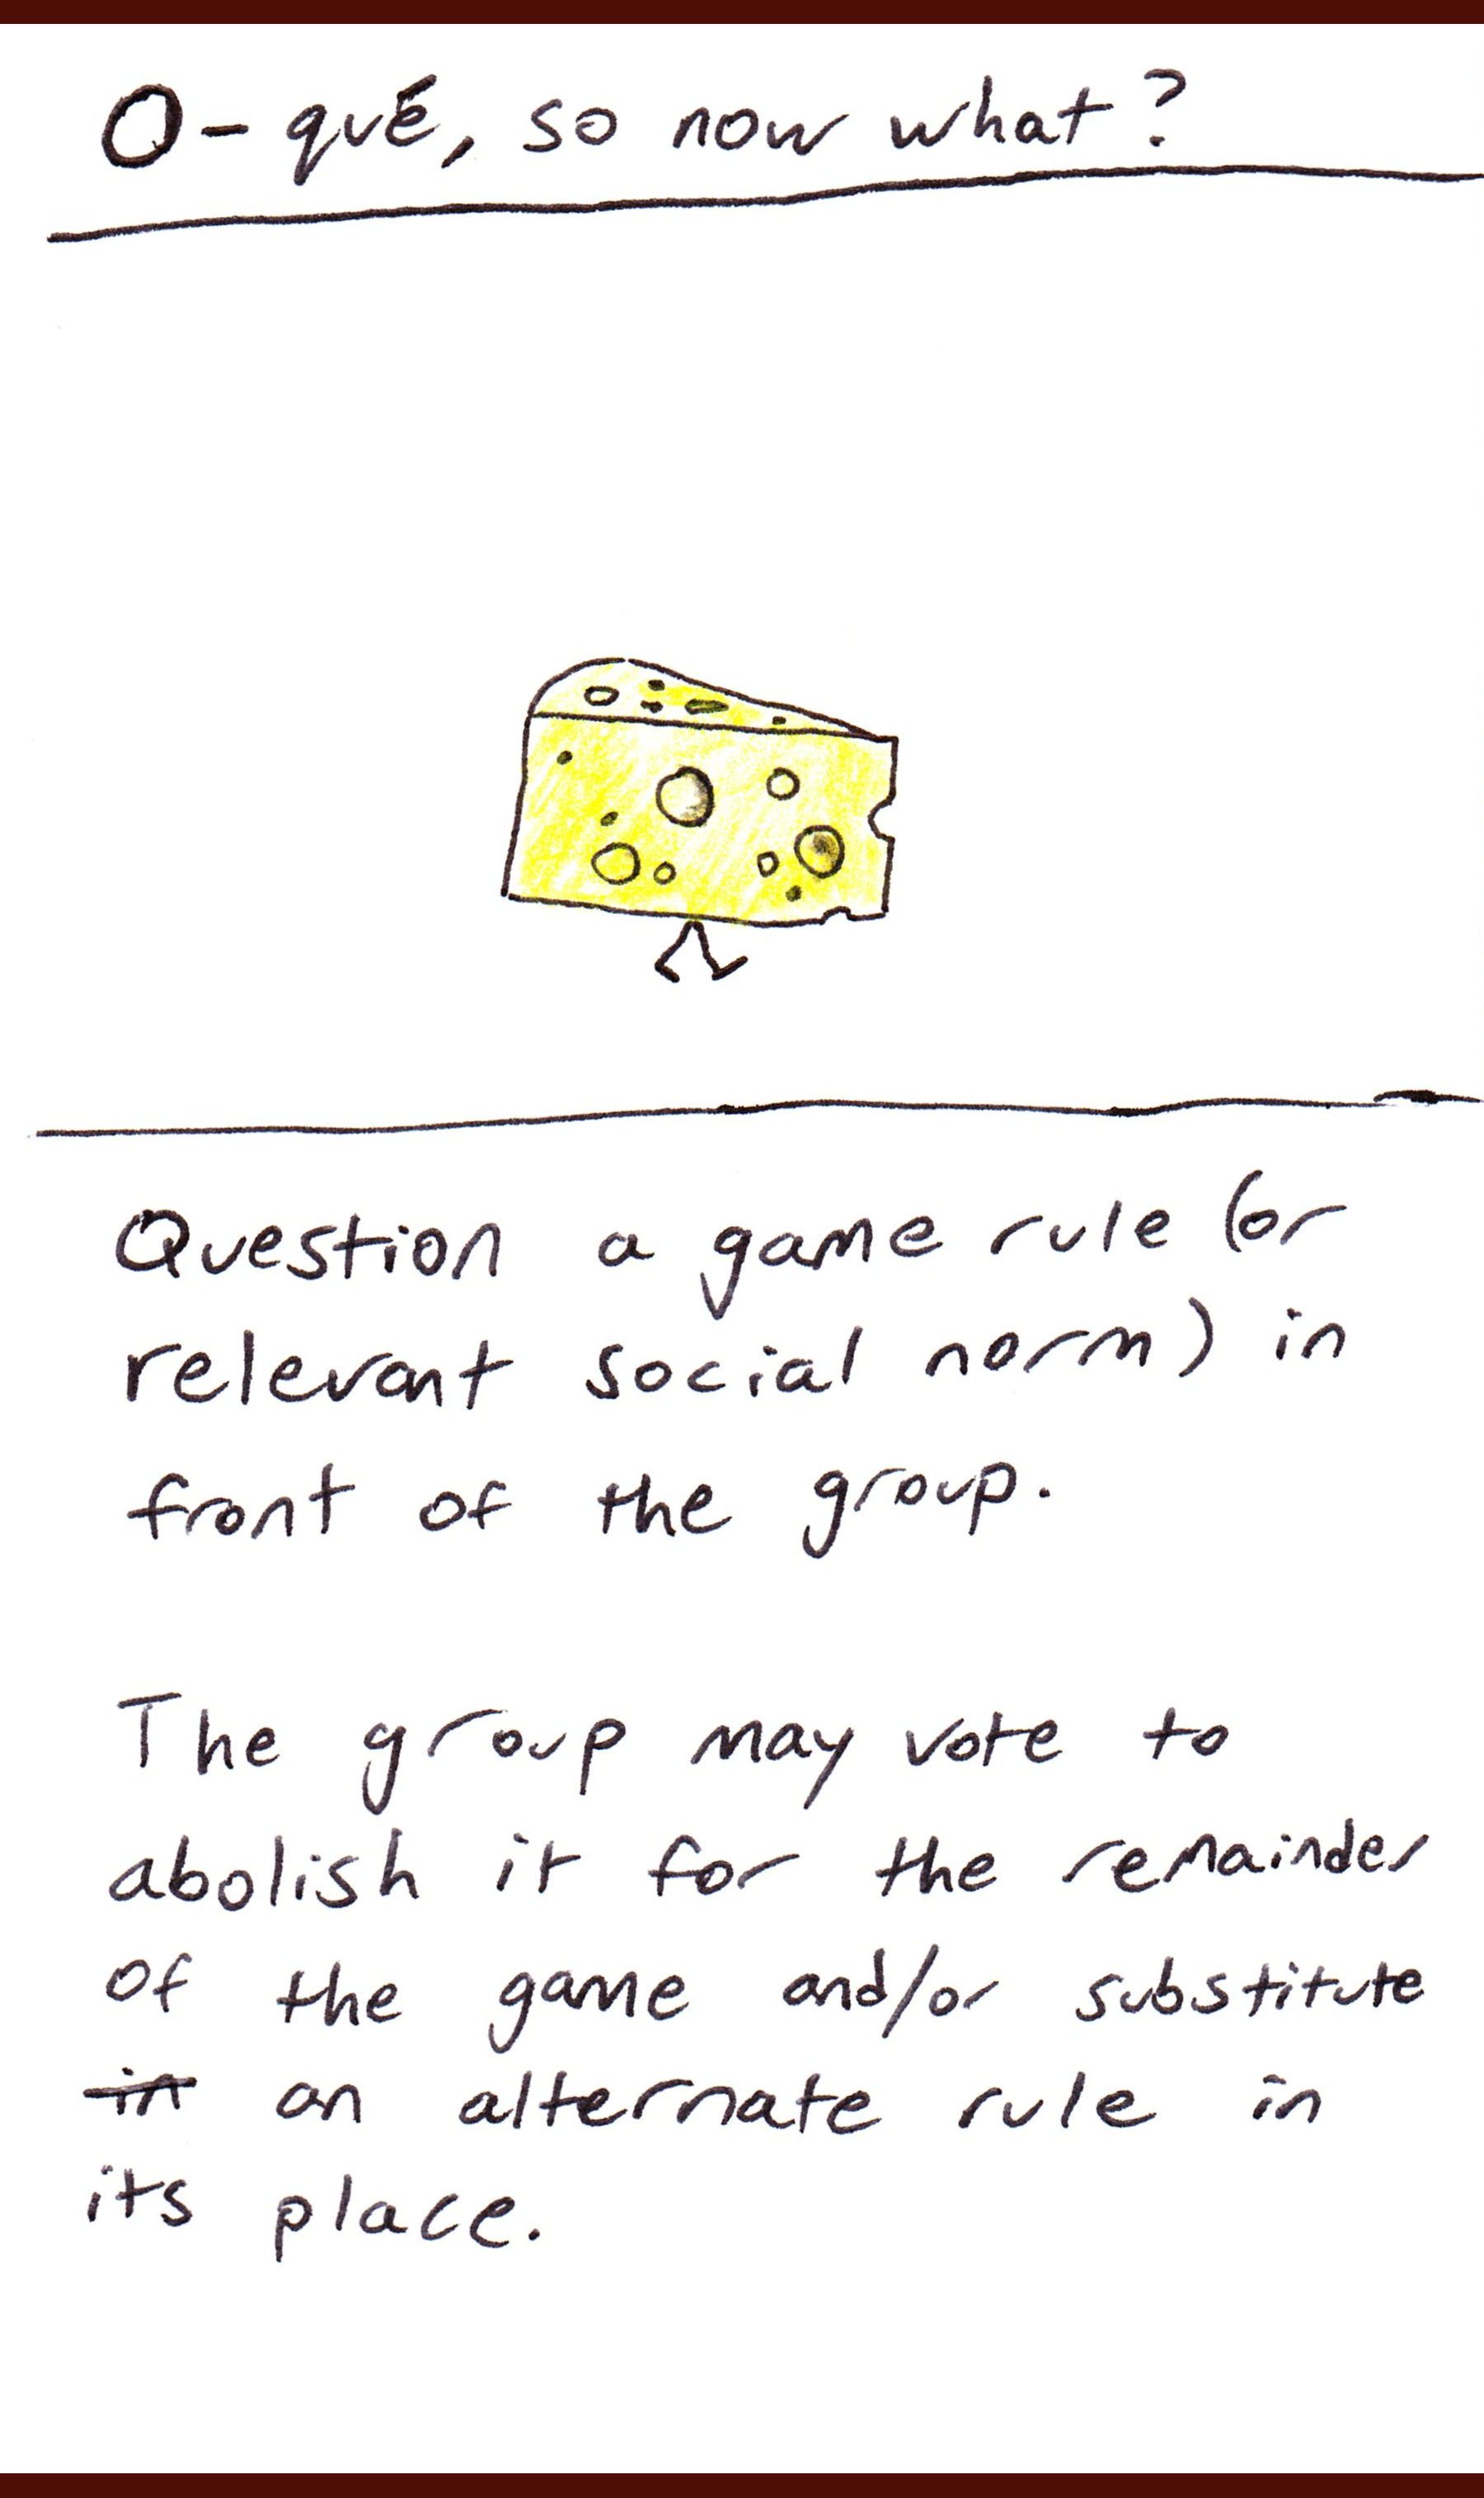 O-qué, so now what?
Question a game rule (or
relevant social norm) in
front of the group.
The group may vote to
abolish it for the remainder
of the game and/or substitute
in an alternate rule in
its place.